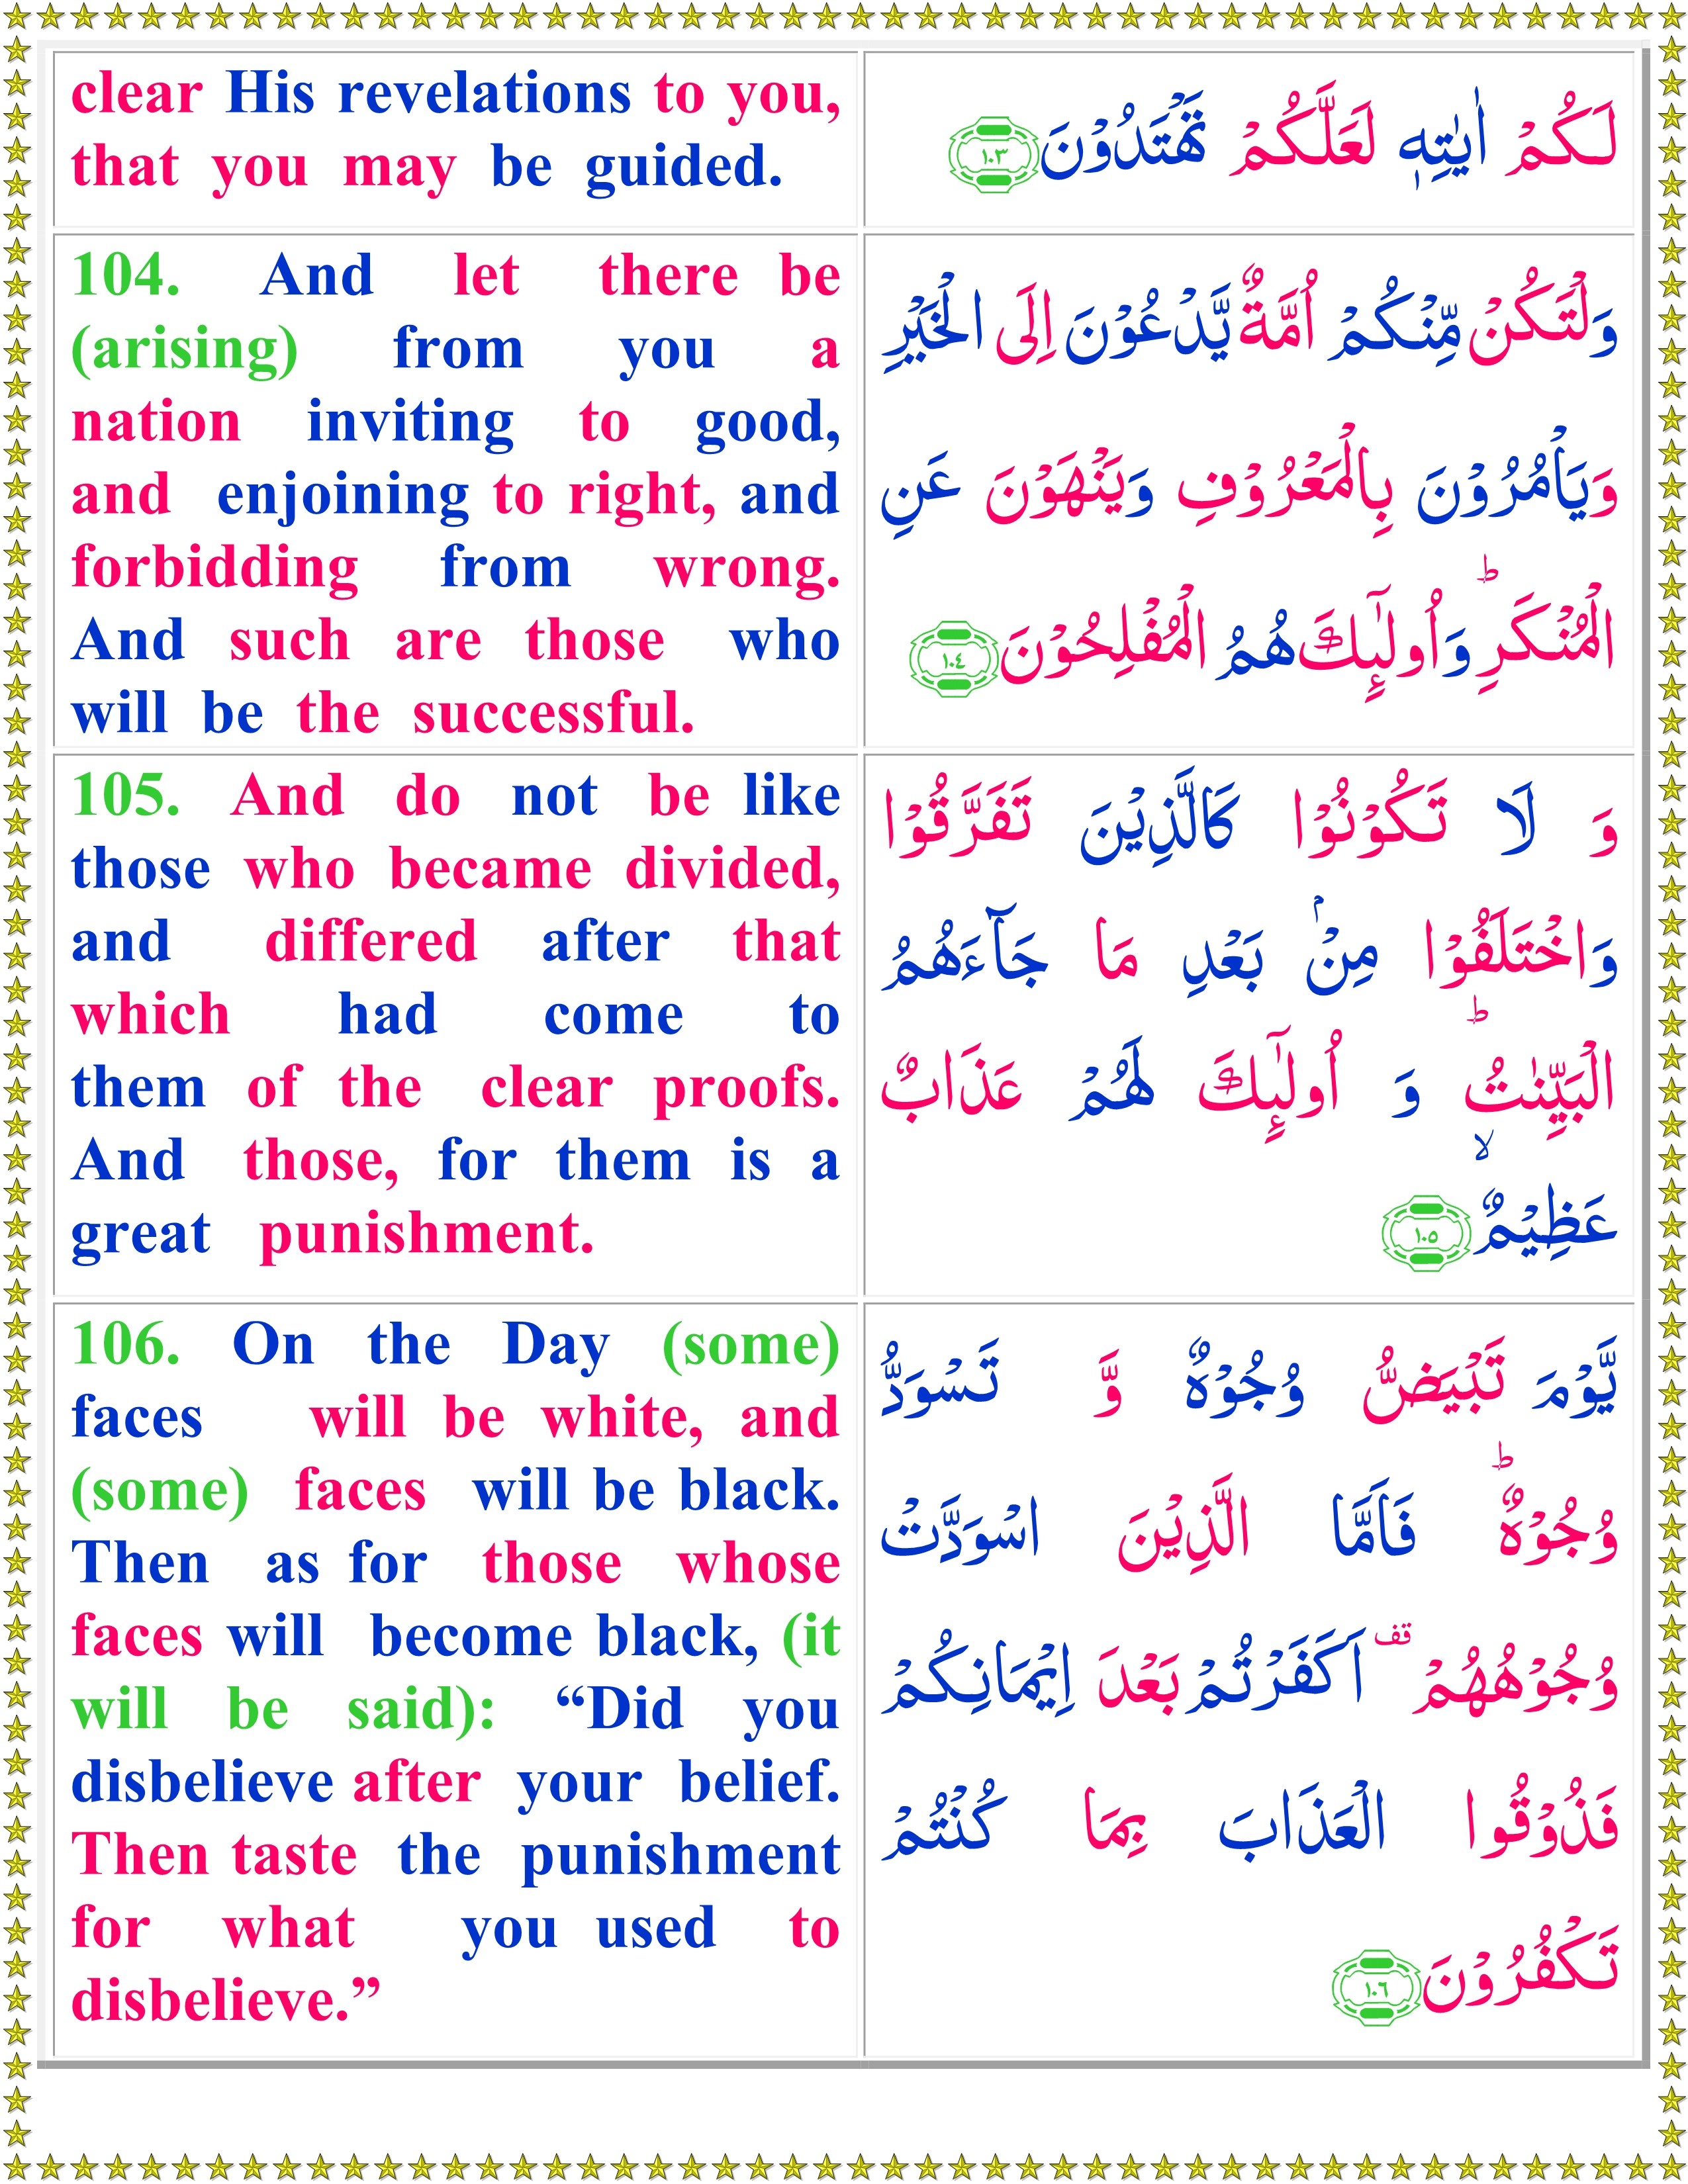 clear His revelations to you,
that you may be guided.
لَكُمْ اٰيٰتِهٖ لَعَلَّكُمْ تَهْتَدُوْنَ ١٠٣
104. And let there be
(arising) from you a
nation inviting to good,
and enjoining to right, and
forbidding from wrong.
And such are those who
will be the successful.
وَلْتَكُنْ مِّنْكُمْ اُمَّةٌ يَّدْعُوْنَ اِلَى الْخَيْرِ
وَيَاْمُرُوْنَ بِالْمَعْرُوْفِ وَيَنْهَوْنَ عَنِ
الْمُنْكَرِ ؕ وَاُولٰٓٮِٕكَ هُمُ الْمُفْلِحُوْنَ ١٠٤
105. And do not be like
those who became divided,
and differed after that
which had come to
them of the clear proofs.
And those, for them is a
great punishment.
وَ لَا تَكُوْنُوْا كَالَّذِيْنَ تَفَرَّقُوْا
وَاخْتَلَفُوْا مِنْۢ بَعْدِ مَا جَآءَهُمُ
الْبَيِّنٰتُ ؕ وَ اُولٰٓٮِٕكَ لَهُمْ عَذَابٌ
عَظِيْمٌ ۙ ١٠٥
106. On the Day (some)
faces will be white, and
(some) faces will be black.
Then as for those whose
faces will become black, (it
will be said): “Did you
disbelieve after your belief.
Then taste the punishment
for what you used to
disbelieve.”
يَّوْمَ تَبْيَضُّ وُجُوْهٌ وَّ تَسْوَدُّ
وُجُوْهٌ ؕ فَاَمَّا الَّذِيْنَ اسْوَدَّتْ
وُجُوْهُهُمْ قف اَكَفَرْتُمْ بَعْدَ اِيْمَانِكُمْ
فَذُوْقُوا الْعَذَابَ بِمَا كُنْتُمْ
تَكْفُرُوْنَ ١٠٦